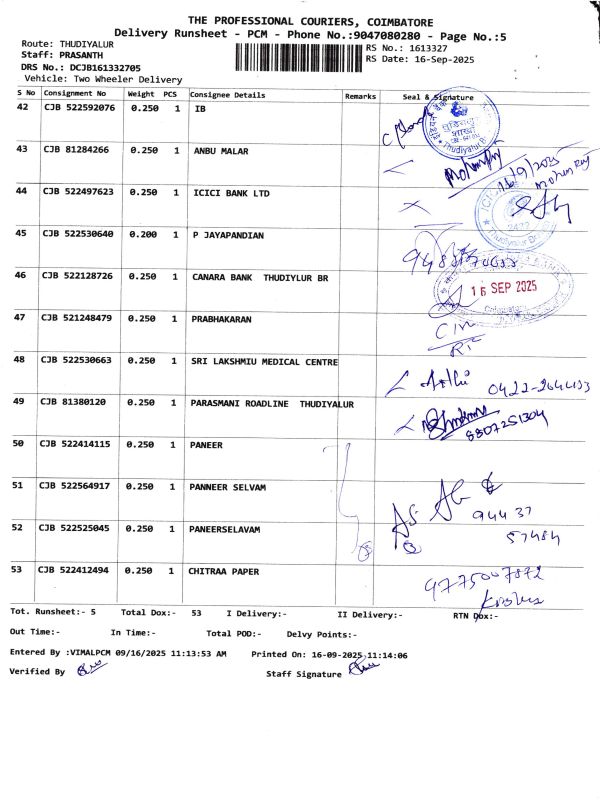 THE PROFESSIONAL COURIERS, COIMBATORE
Delivery Runsheet - PCM - Phone No.:9047080280 - Page No.:5
Route: THUDIYALUR
RS No.: 1613327
Staff: PRASANTH
RS Date: 16-Sep-2025
DRS No.: DCJB161332705
Vehicle: Two Wheeler Delivery
S No Consignment No Weight PCS Consignee Details Remarks Seal & Signature
42 CJB 522592076 0.250 1 IB
43 CJB 81284266 0.250 1 ANBU MALAR
16/9/2025
44 CJB 522497623 0.250 1 ICICI BANK LTD
45 CJB 522530640 0.200 1 P JAYAPANDIAN
46 CJB 522128726 0.250 1 CANARA BANK THUDIYLUR BR
16 SEP 2025
47 CJB 521248479 0.250 1 PRABHAKARAN
48 CJB 522530663 0.250 1 SRI LAKSHMIU MEDICAL CENTRE
0422-2644133
49 CJB 81380120 0.250 1 PARASMANI ROADLINE THUDIYALUR
8807251304
50 CJB 522414115 0.250 1 PANEER
51 CJB 522564917 0.250 1 PANNEER SELVAM
94437
57484
52 CJB 522525045 0.250 1 PANEERSELAVAM
53 CJB 522412494 0.250 1 CHITRAA PAPER
9775007872
Tot. Runsheet:- 5 Total Dox:- 53 I Delivery:- II Delivery:- RTN Dox:-
Out Time:- In Time:- Total POD:- Delvy Points:-
Entered By :VIMALPCM 09/16/2025 11:13:53 AM Printed On: 16-09-2025 11:14:06
Verified By
Staff Signature